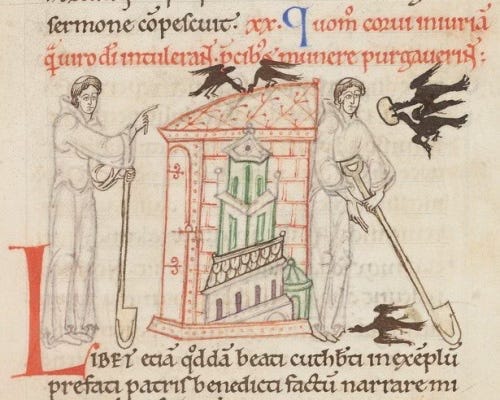 sermone cōpescuit. xx. Quom̄ corui iniuriā
q̄ uiro dī intulerāt p̄cib; & munere purgauerīt:
LIBET etiā qͦddā beati cuthb̄ti in exēplū
prefati patris benedicti factū narrare mi